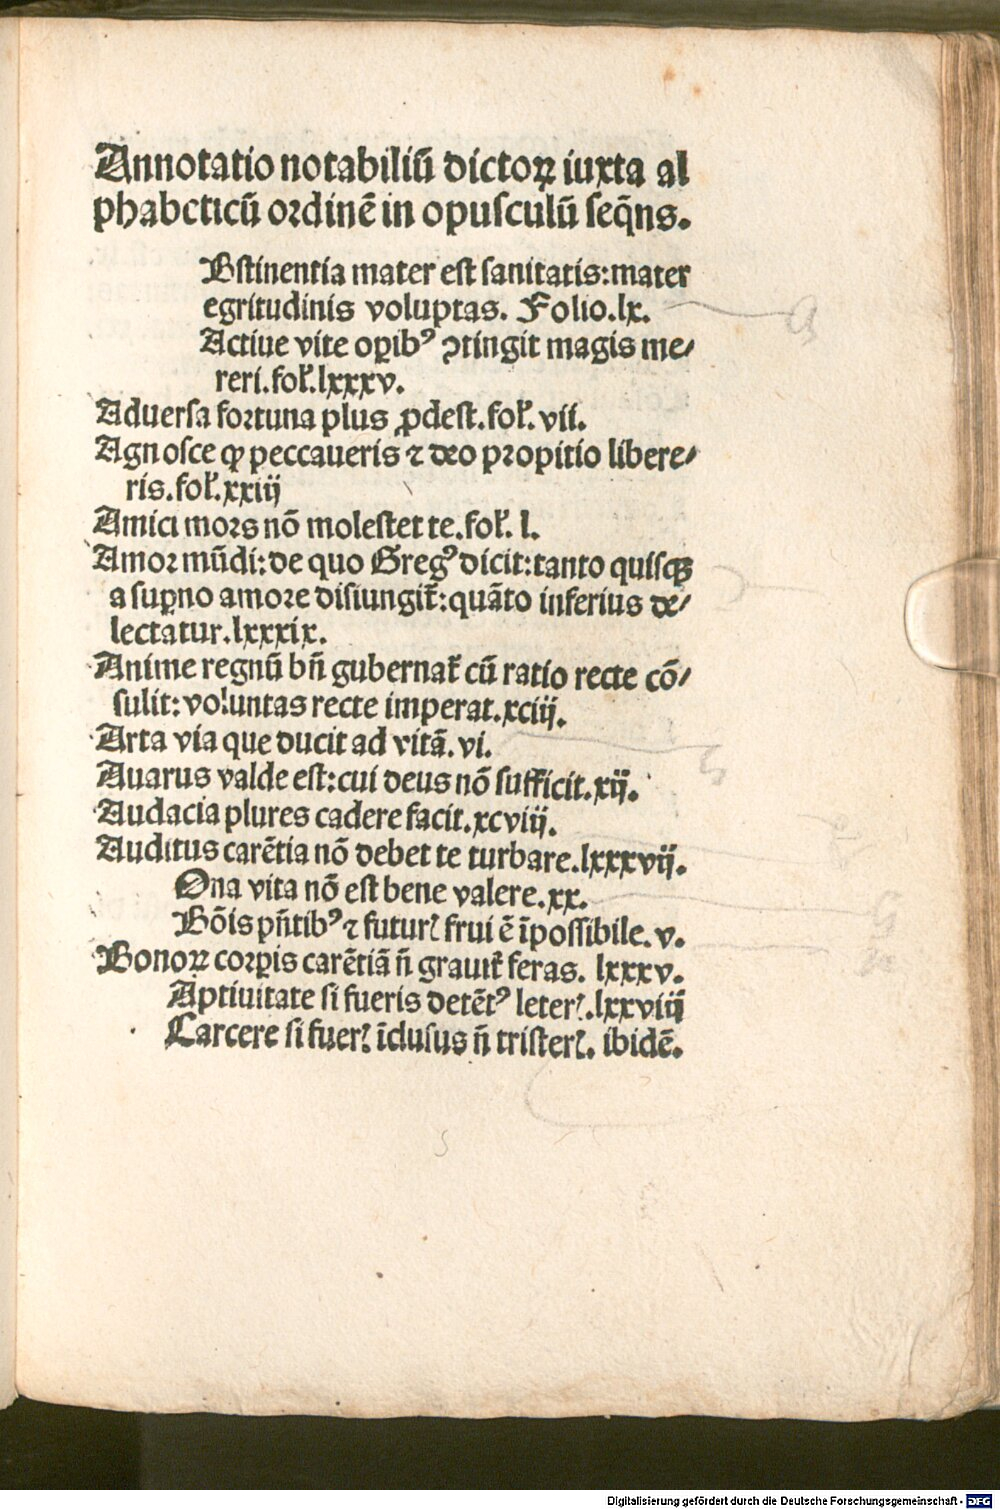 Annotatio notabiliū dictoꝝ iuxta al
phabeticū ordinē in opusculū seq̄ns.
Bstinentia mater est sanitatis:mater
egritudinis voluptas. Folio.lx.
Actiue vite oꝑibꝰ ꝯtingit magis me⸗
reri.fol̓.lxxxv.
Aduersa fortuna plus ꝓdest.fol̓.vii.
Agnosce ꝙ peccaueris ⁊ deo propitio libere⸗
ris.fol̓.xxiij
Amici mors nō molestet te.fol̓. l.
Amor mūdi:de quo Gregꝰ dicit:tanto quisqꝫ
a suꝑno amore disiungit̃:quāto inferius de⸗
lectatur.lxxxix.
Anime regnū bn̄ gubernat̃ cū ratio recte cō⸗
sulit:voluntas recte imperat.xciij.
Arta via que ducit ad vitā.vi.
Auarus valde est:cui deus nō sufficit.xij.
Audacia plures cadere facit.xcviij.
Auditus carētia nō debet te turbare.lxxxvij.
Ona vita nō est bene valere.xx.
Bōis pn̄tibꝰ ⁊ futurꝭ frui ē īpossibile.v.
Bonoꝝ corꝑis carētiā n̄ grauit̃ feras. lxxxv.
Aptiuitate si fueris detētꝰ leterꝭ.lxxviij
Carcere si fuerꝭ īclusus n̄ tristerꝭ. ibidē.
Digitalisierung gefördert durch die Deutsche Forschungsgemeinschaft - DFG